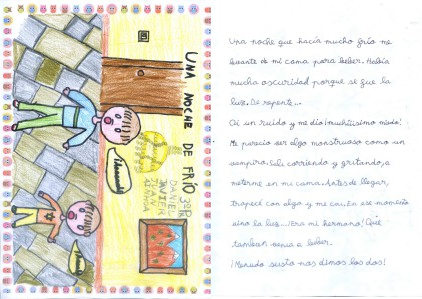 UNA NOCHE DE FRÍO
3ºB
DANIEL
JAVIER
IVÁN
AINHOA
Una noche que hacía mucho frío me
levante de mi cama para beber. Había
mucha oscuridad porque se fue la
luz. De repente...
Oí un ruido y me dio ¡muchíisimo miedo!
Me parecio ser algo monstruoso como un
vampiro. Salí corriendo y gritando, a
meterme en mi cama. Antes de llegar,
tropecé con algo y me caí. En ese momento
vino la luz... ¡Era mi hermano! Que
tambien venia a beber.
¡Menudo susto nos dimos los dos!